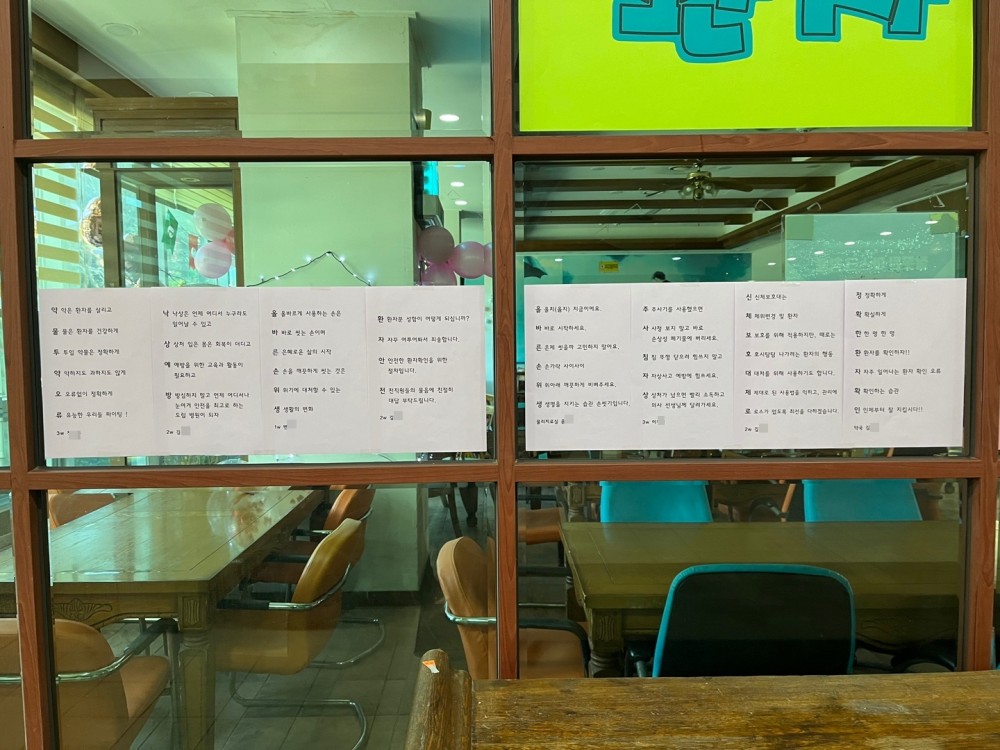 약 약은 환자를 살리고
물 물은 환자를 건강하게
투 투입 약물은 정확하게
약 약하지도 과하지도 않게
오 오류없이 정확하게
류 유능한 우리들 화이팅 !
3w
낙 낙상은 언제 어디서 누구라도
일어날 수 있고
상 상처 입은 몸은 회복이 더디고
예 예방을 위한 교육과 활동이
필요하고
방 방심하지 말고 언제 어디서나
눈여겨 안전을 최고로 하는
드림 병원이 되자.
2w 김
올 올바르게 사용하는 손은
바 바로 씻는 손이며
른 은혜로운 삶의 시작
손 손을 깨끗하게 씻는 것은
위 위기에 대처할 수 있는
생 생활의 변화
1w 변
환 환자분 성함이 어떻게 되십니까?
자 자꾸 여쭈어봐서 죄송합니다.
안 안전한 환자확인을 위한
절차입니다.
전 전직원들의 물음에 친절히
대답 부탁드립니다.
2w 김
올 올치(옳지) 지금이에요.
바 바로 시작하세요.
른 른제 씻을까 고민하지 말아요.
손 손가락 사이사이
위 위아래 깨끗하게 비벼주세요.
생 생명을 지키는 습관 손씻기입니다.
물리치료실 윤
주 주사기를 사용했으면
사 사정 보지 말고 바로
손상성 폐기물에 버리세요.
침 침 뚜껑 닫으려 힘쓰지 말고
자 자상사고 예방에 힘쓰세요.
상 상처가 났으면 빨리 소독하고
의사 선생님께 달려가세요.
3w 박
신 신체보호대는
체 체위변경 및 환자
보 보호를 위해 적용하지만, 때로는
호 호시탐탐 나가려는 환자의 행동
대 대처를 위해 사용하기도 합니다.
제 제대로 된 사용법을 익히고, 관리에
로 로스가 없도록 최선을 다하겠습니다.
2w 김
정 정확하게
확 확실하게
한 한 명 한 명
환 환자를 확인하자!!
자 자주 일어나는 환자 확인 오류
확 확인하는 습관
인 인제부터 잘 지킵시다!!
약국 김